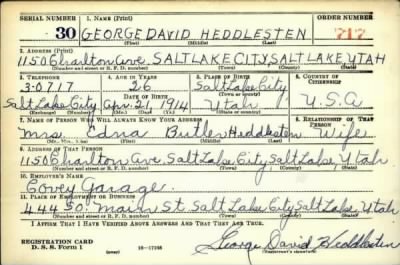 SERIAL NUMBER 1. NAME (Print) ORDER NUMBER
30 GEORGE DAVID HEDDLESTEN 717
(First) (Middle) (Last)
2. ADDRESS (Print)
1150 Charlton Ave. SALT LAKE CITY, SALT LAKE UTAH
(Number and street or R. F. D. number) (Town) (County) (State)
3. TELEPHONE 4. AGE IN YEARS 5. PLACE OF BIRTH 6. COUNTRY OF CITIZENSHIP
3-0717 26 Salt Lake City
DATE OF BIRTH (Town or county)
Salt Lake City Apr. 21, 1914 Utah U.S.A
(Exchange) (Mo.) (Day) (Yr.) (State or country)
7. NAME OF PERSON WHO WILL ALWAYS KNOW YOUR ADDRESS 8. RELATIONSHIP OF THAT PERSON
Mrs. Edna Butler Heddlesten Wife
(Mr., Mrs., Miss) (First) (Middle) (Last)
9. ADDRESS OF THAT PERSON
1150 Charlton Ave Salt Lake City, Salt Lake, Utah
(Number and street or R. F. D. number) (Town) (County) (State)
10. EMPLOYER'S NAME
Covey Garage.
11. PLACE OF EMPLOYMENT OR BUSINESS
444 So. Main St Salt Lake City, Salt Lake, Utah
(Number and street or R. F. D. number) (Town) (County) (State)
I AFFIRM THAT I HAVE VERIFIED ABOVE ANSWERS AND THAT THEY ARE TRUE.
REGISTRATION CARD
D. S. S. Form 1 George David Heddlesten
(Registrant's signature)